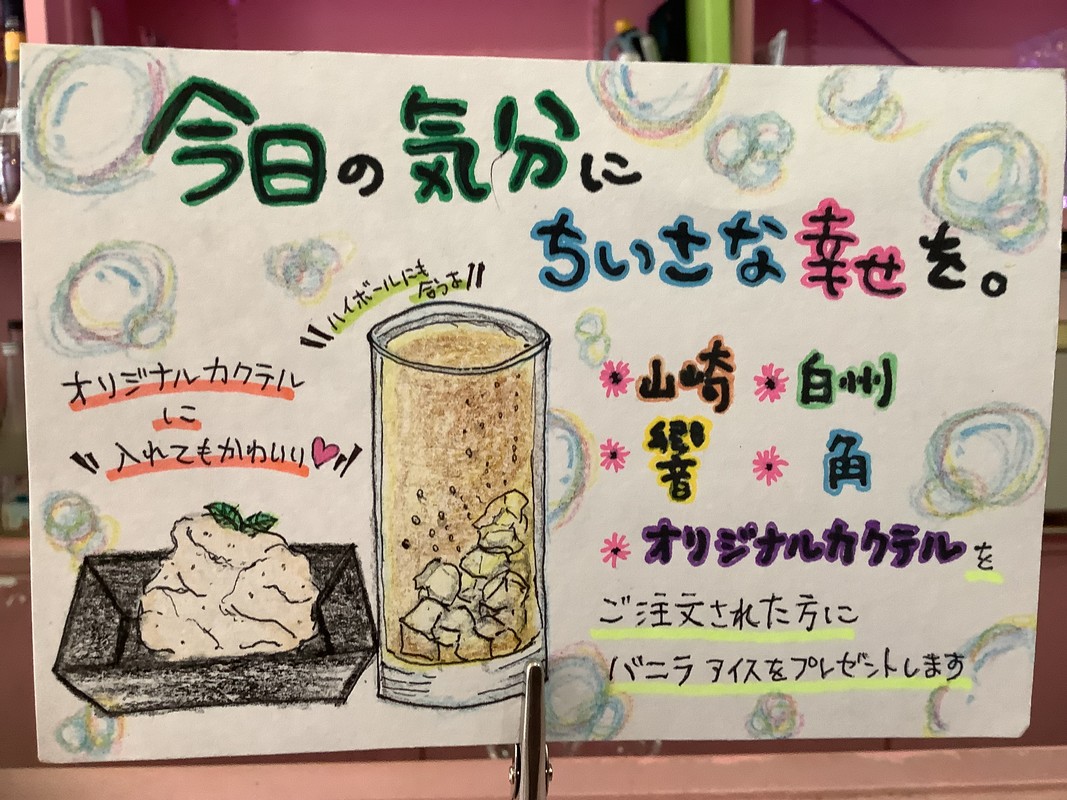 今日の気分に
ちいさな幸せを。
ハイボールにも
合うよ!!
オリジナルカクテル
に
入れてもかわいい♡
*山崎 *白州
*響 *角
*オリジナルカクテルを
ご注文された方に
バニラアイスをプレゼントします